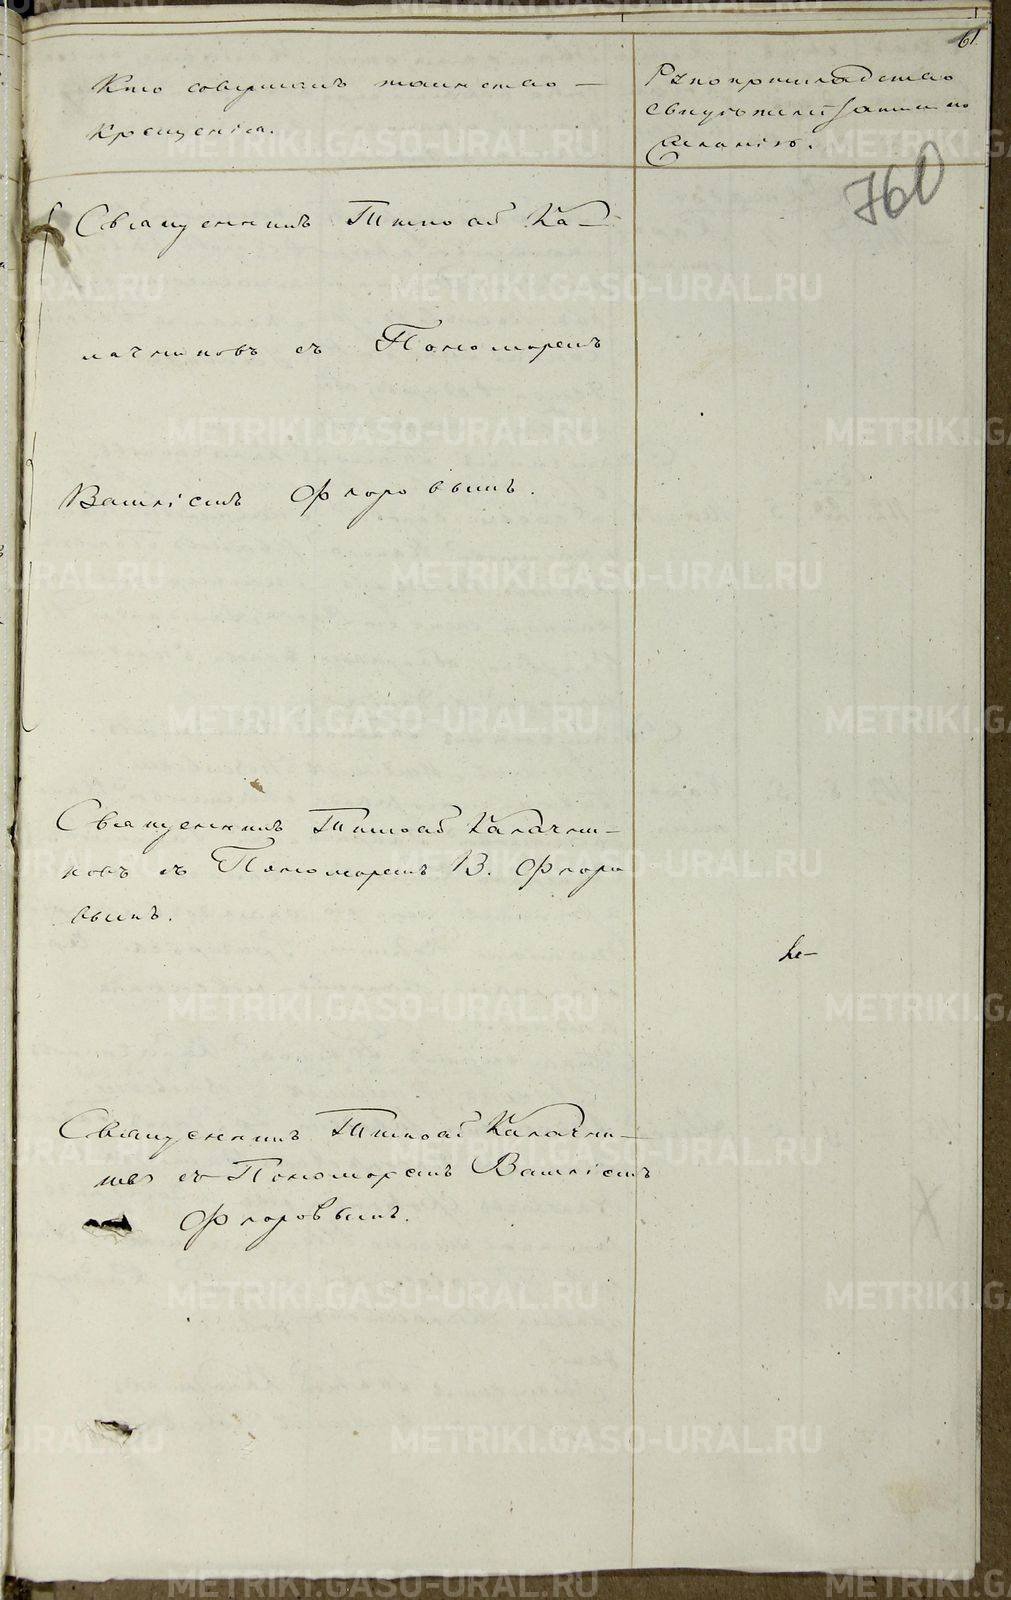 61.
Кто совершалъ таинство
крещенія.
Рукоприкладство
свидѣтелей записи по
желанію.
760
Священникъ Тимоѳей Ка-
лачниковъ съ Пономаремъ
Василіемъ Флоровымъ.
Священникъ Тимоѳей Калачни-
ковъ съ Пономаремъ В. Флоро
вымъ.
Священникъ Тимоѳей Калачни-
съ Пономаремъ Василіемъ
Флоровымъ.
METRIKI.GASO-URAL.RU